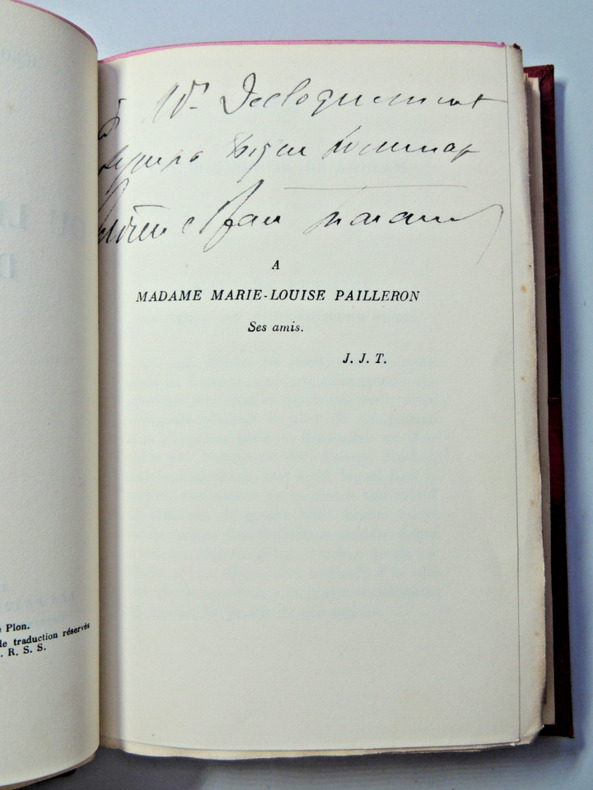 à Mr Decloquement
Jérôme et Jean Tharaud
A
MADAME MARIE-LOUISE PAILLERON
Ses amis.
J. J. T.
Plon.
de traduction réservés
. R. S. S.